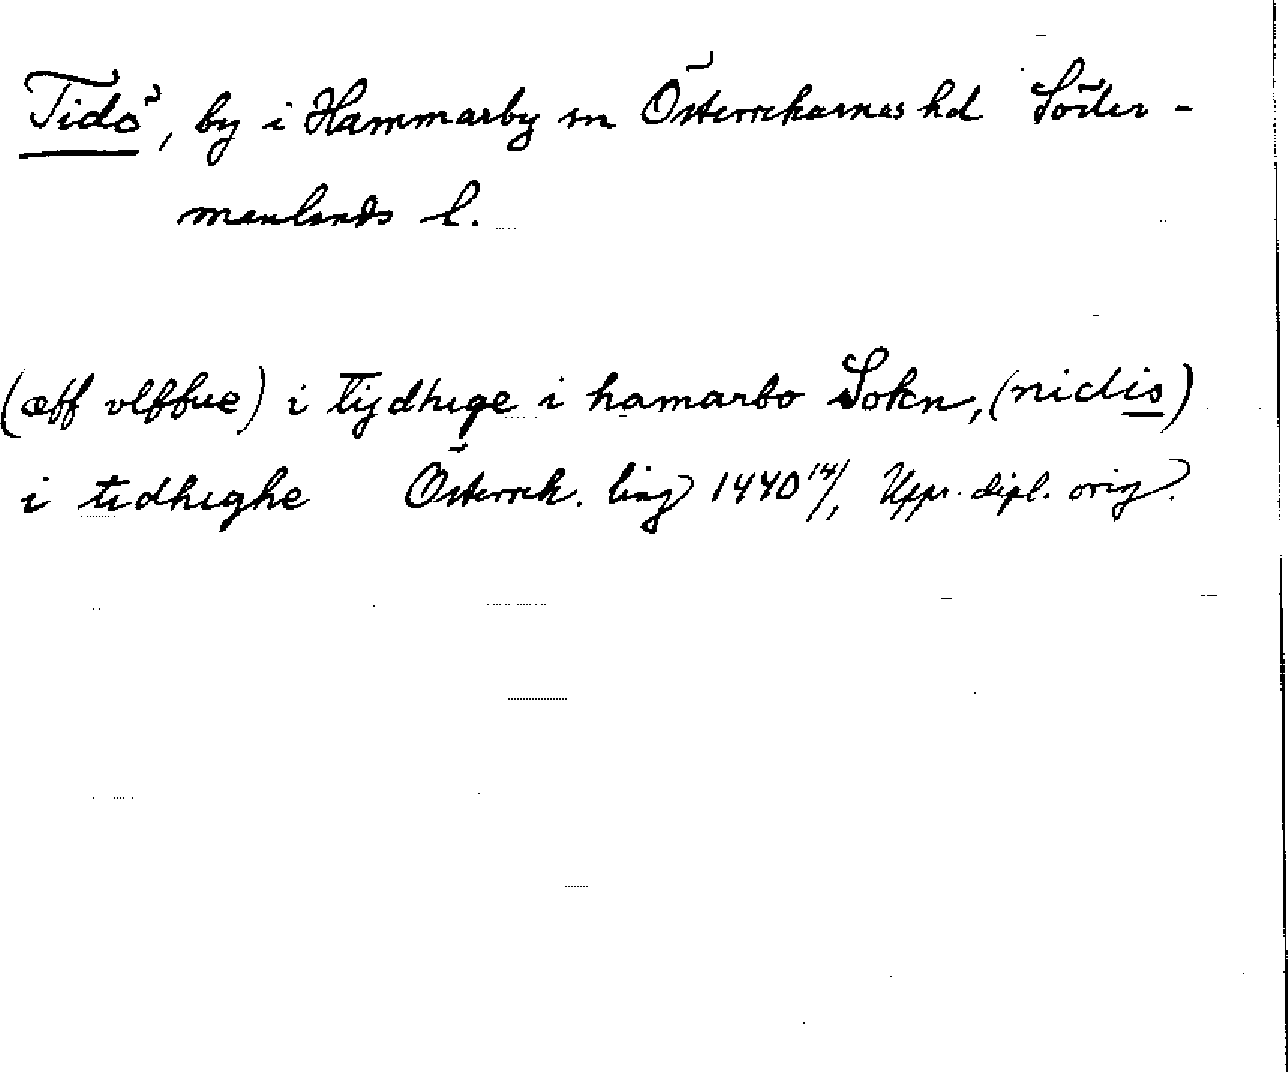 Tidö, by i Hammarby sn Österrekarnes hd Söder-
manlands l.
(æff vlffue) i tijdhige i hamarbo Sokn, (nidis)
i tidhighe Österrek. ting 1440 14/, Uppr. dipl. orig.